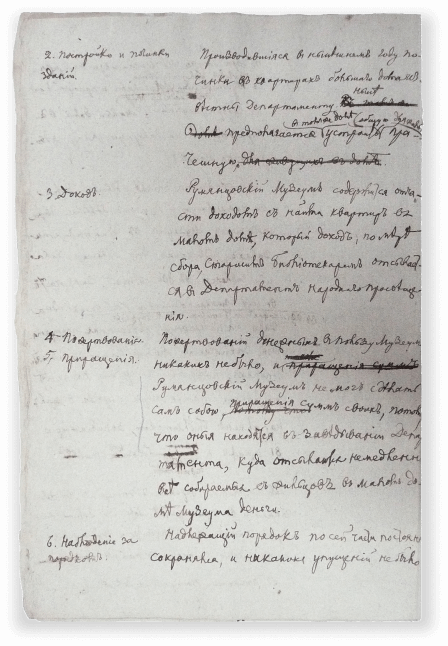 2. Постройка и починка
зданій.
Производившіяся въ нынѣшнемъ году по-
чинки въ квартирахъ большаго дома из-
вѣстны Департаменту.
предполагается устроить пра-
чешную,
3. Доходъ.
Румянцовскій Музеумъ содержится отча-
сти доходомъ съ найма квартиръ въ
маломъ домѣ, который доходъ, по мѣрѣ
сбора, Старшимъ библіотекаремъ отсылает-
ся въ Департаментъ народнаго просвѣще-
нія.
4. Пожертвованія.
Пожертвованій денежныхъ въ пользу Музеума
5. Приращенія.
никакихъ небыло, и приращенія суммъ
Румянцовскій Музеумъ не могъ сдѣлать
самъ собою, приращенія суммъ своихъ, потому
что оныя находятся въ завѣдываніи Депар-
тамента, куда отсылаются немедленно
всѣ собираемыя съ жильцовъ въ маломъ до-
мѣ Музеума деньги.
6. Наблюденіе за
порядкомъ.
Надлежащій порядокъ по сей части постоянно
сохранялся, и никакихъ упущеній не было